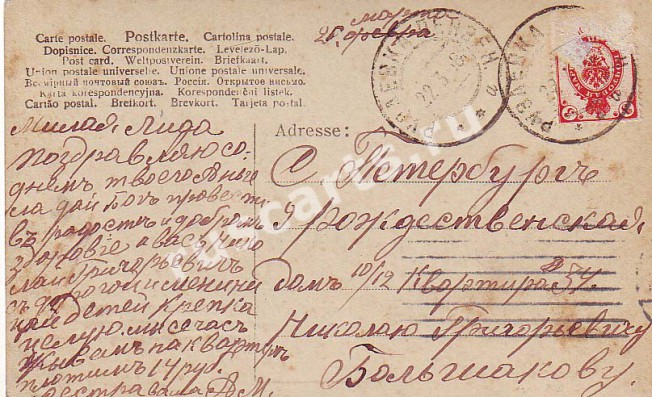 Carte postale. Postkarte. Cartolina postale.
Dopisnice. Correspondenzkarte. Levelező-Lap.
Post card. Weltpostverein. Briefkaart.
Union postale universelle. Unione postale universale.
Всемірный почтовый союзъ. Россія. Открытое письмо.
Karta korespondencyjna. Korespondenční listek.
Cartão postal. Brefkort. Brevkort. Tarjeta postal.
марта
РУЗАЕВКА
РУЗАЕВКА
Милая Лида
поздравляю со
днемъ твоего
дай Богъ провести
въ радости и добромъ
здоровіе а васъ
съ дорогой именини
цей детей крепка
целую мы сечасъ
жывемъ на кварт
платимъ 14 руб.
сестра ваша
Adresse:
С. Петербургъ
Рождественская
домъ 10/12 Квартира 34.
Николаю Григорьевичу
Большакову.
ruscarts.ru